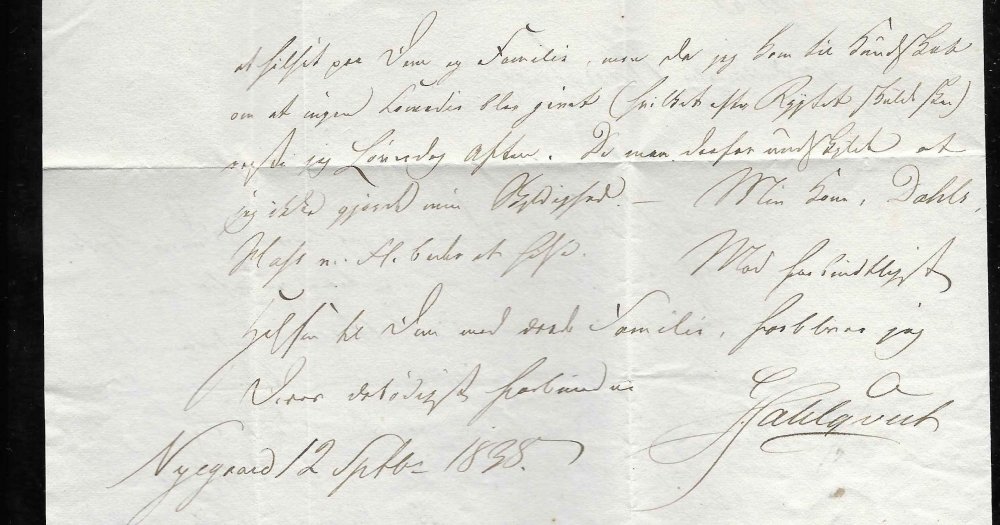 at hilse paa Dem og Familie, men da jeg kom til Kundskab
om at ingen Comedie blev givet (hvilket efter Rygtet skulde skee)
reiste jeg Løverdag Aften. De maa derfor undskylde at
jeg ikke gjorde min Skyldighed. — Min Kone, Dahls,
beder at hilse. Med forbindtligst
Hilsen til Dem med ærede Familie, forbliver jeg
Deres ærbødigst forbundne
Nyegaard 12 Septbr 1838.